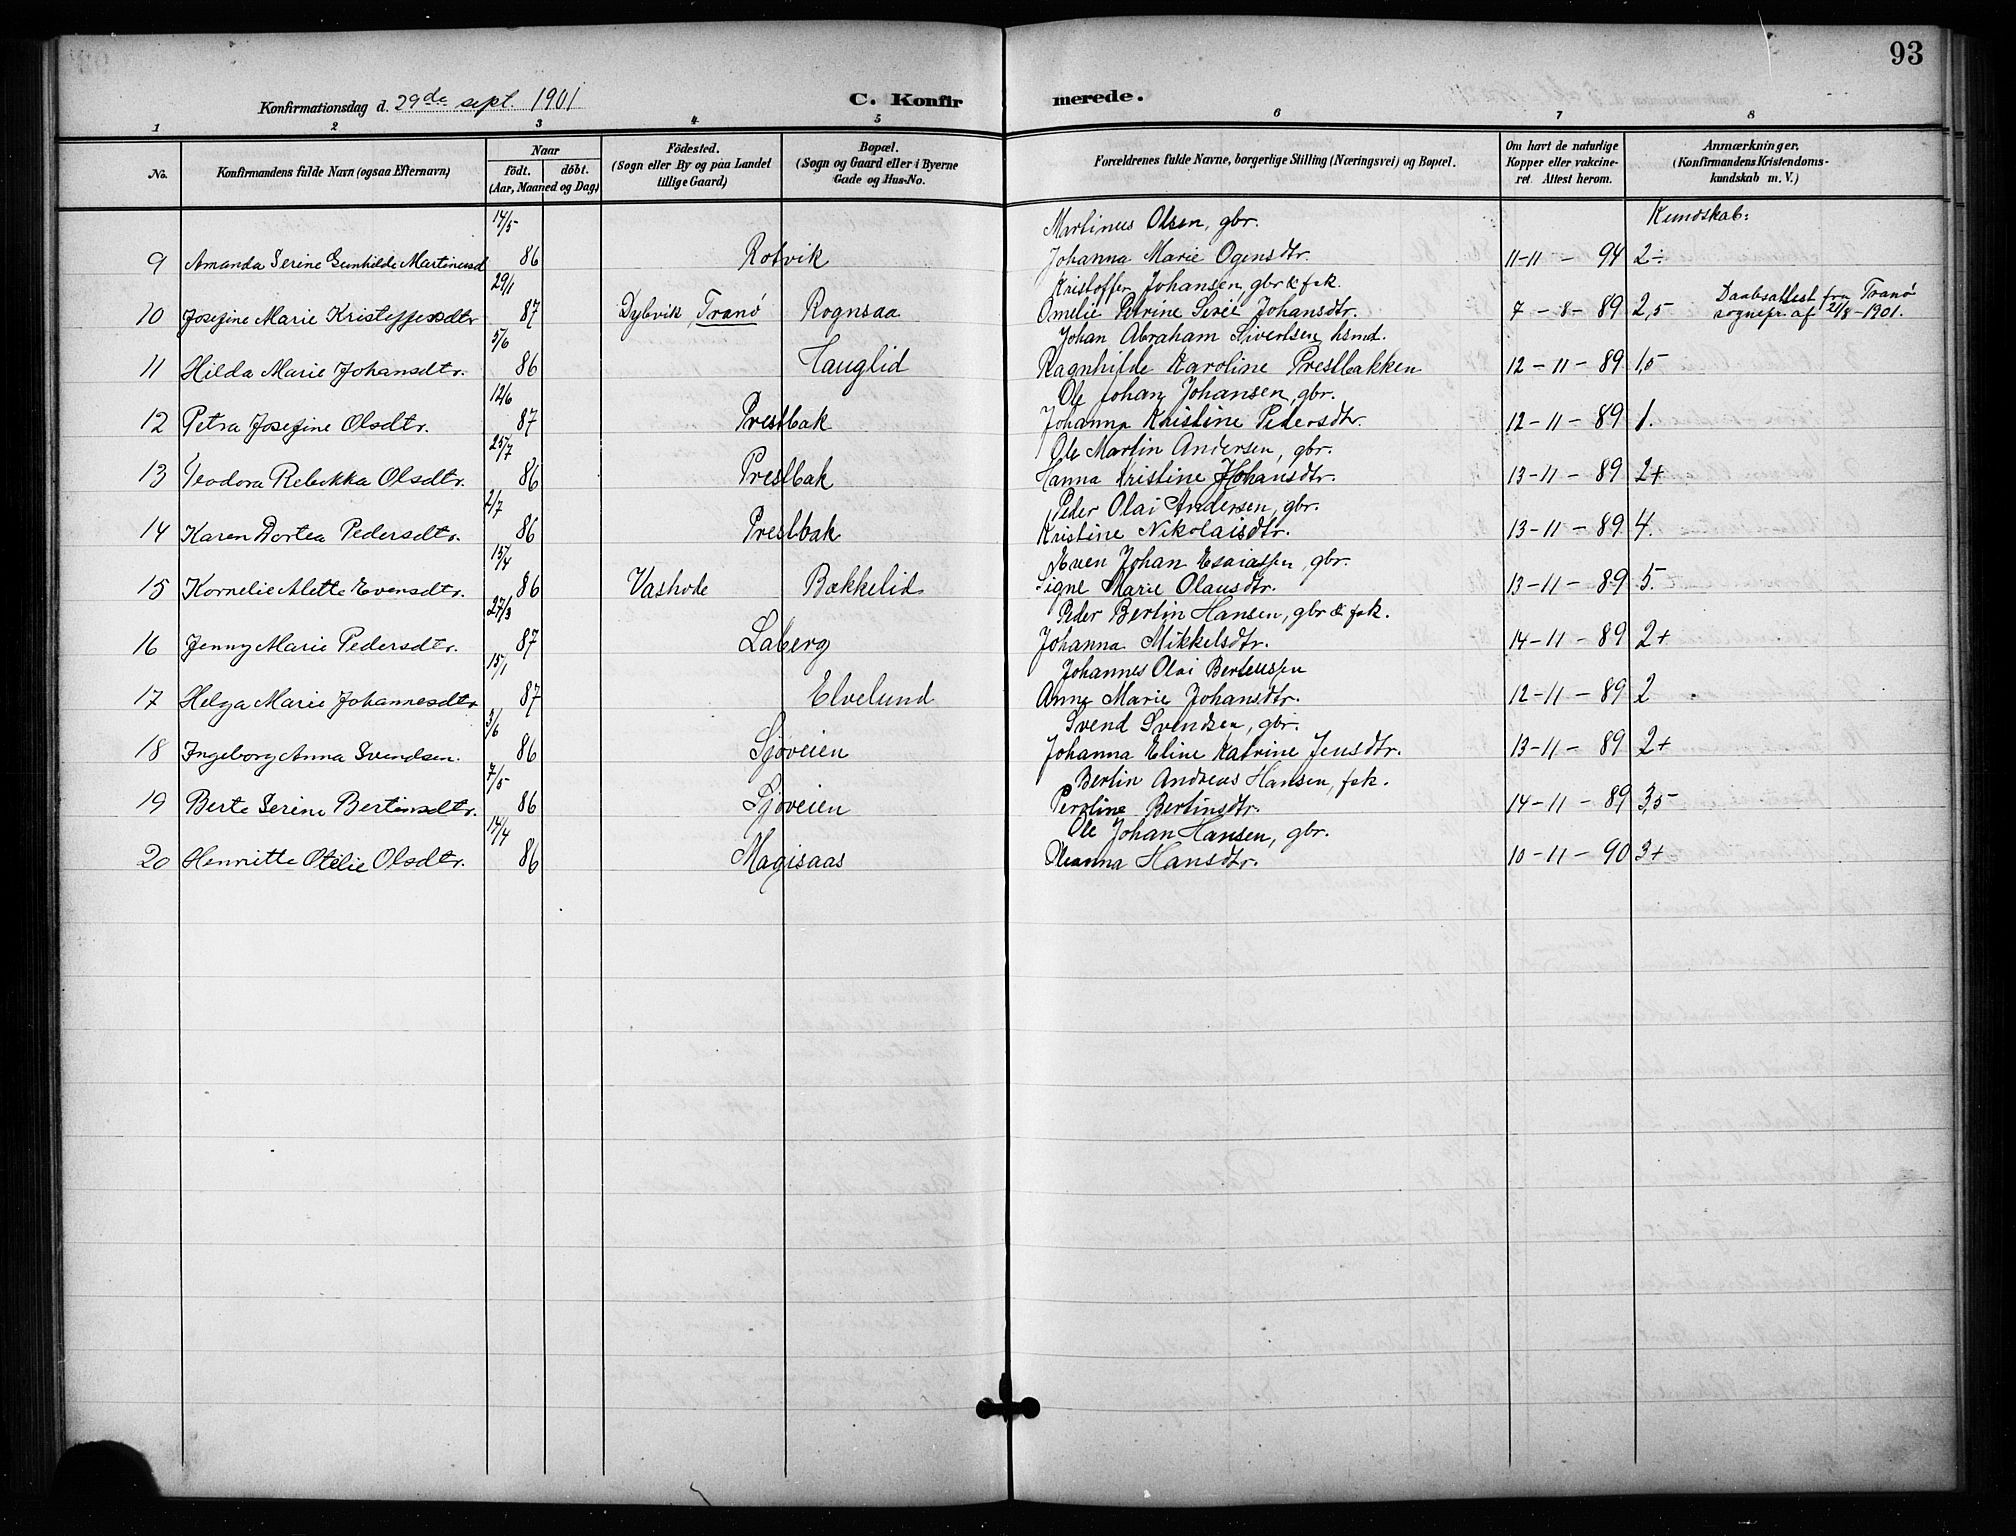 93
Konfirmationsdag d. 29de sept. 1901
C. Konfirmerede.
1 2 3 4 5 6 7 8
No.
Konfirmandens fulde Navn (ogsaa Efternavn)
Naar
födt. döbt.
(Aar, Maaned og Dag)
Födested.
(Sogn eller By og paa Landet
tillige Gaard)
Bopæl.
(Sogn og Gaard eller i Byerne
Gade og Hus-No.
Forældrenes fulde Navne, borgerlige Stilling (Næringsvei) og Bopæl.
Om havt de naturlige
Kopper eller vakcine-
ret. Attest herom.
Anmærkninger,
(Konfirmandens Kristendoms-
kundskab m. V.)
14/5 Martinus Olsen, gbr. Kundskab:
9 Amanda Serine Gunhilde Martinusd 86 Rotvik Johanna Marie Ogensdtr. 11-11-94 2÷
29/1 Kristoffer Johansen, gbr & fsk.
10 Josefine Marie Kristoffersdtr 87 Dybvik, Tranø Rognsaa Omelie Petrine Sirei Johansdtr. 7-8-89 2,5 Daabsattest fra Tranø
sognepr. af 2/8-1901.
5/6 Johan Abraham Sivertsen hsmd.
11 Hilda Marie Johansdtr. 86 Hauglid Ragnhilde Karoline Prestbakken 12-11-89 1,5
12/6 Ole Johan Johansen, gbr.
12 Petra Josefine Olsdtr. 87 Prestbak Johanna Kristine Pedersdtr. 12-11-89 1.
25/7 Ole Martin Andersen, gbr.
13 Teodora Rebekka Olsdtr. 86 Prestbak Hanna Kristine Johansdtr. 13-11-89 2+
2/7 Peder Olai Andersen, gbr.
14 Karen Dortea Pedersdtr. 86 Prestbak Kristine Nikolaisdtr. 13-11-89 4.
15/4 Even Johan Esaiassen, gbr.
15 Kornelie Alette Evensdtr. 86 Vashode Bækkelid Signe Marie Olausdtr. 13-11-89 5.
27/3 Peder Bertin Hansen, gbr & fsk.
16 Jenny Marie Pedersdtr. 87 Laberg Johanna Mikkelsdtr. 14-11-89 2+
15/1 Johannes Olai Berteussen
17 Helga Marie Johannesdtr 87 Elvelund Anne Marie Johansdtr. 12-11-89 2
3/6 Svend Svendsen, gbr.
18 Ingeborg Anna Svendsen. 86 Sjøveien Johanna Eline Katrine Jensdtr. 13-11-89 2+
7/5 Bertin Andreas Hansen, fsk.
19 Berte Serine Bertinsdtr. 86 Sjøveien Peroline Bertinsdtr. 14-11-89 3,5
14/4 Ole Johan Hansen, gbr.
20 Henriette Otelie Olsdtr. 86 Magisaas Hansdtr. 10-11-90 3+